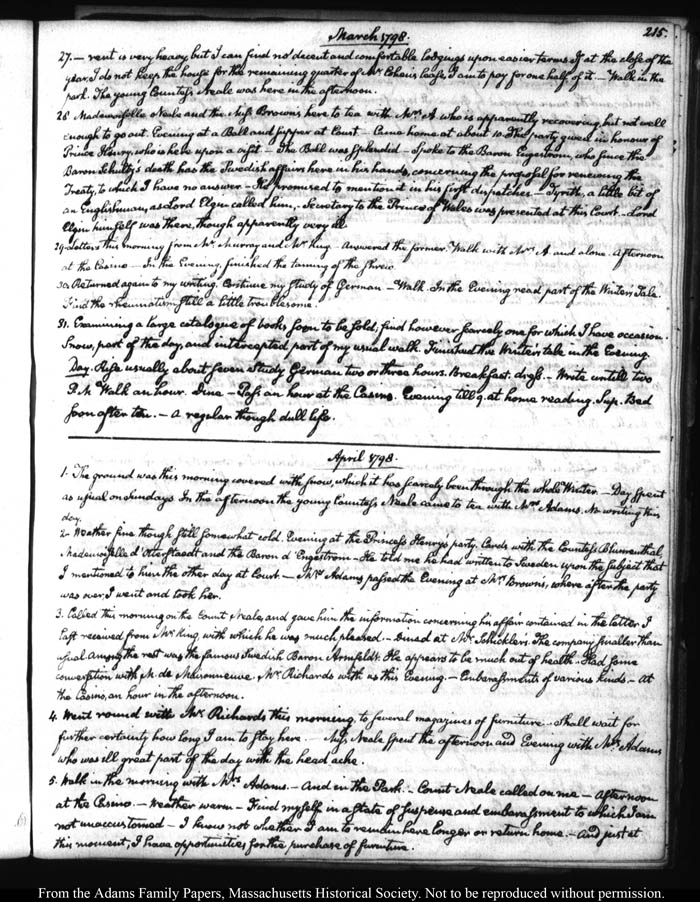 215.
March 1798.
27. — rent is very heavy, but I can find no decent and comfortable lodgings upon easier terms. If at the close of the
year, I do not keep the house for the remaining quarter of Mr. Cohen's lease, I am to pay for one half of it. — Walk in the
park. The young Countess Neale was here in the afternoon.
28. Mademoiselle Neale and the Miss Brown's here to tea with Mrs. A. who is apparently recovering, but not well
enough to go out. Evening at a Ball and supper at Court — Came home at about 10. The party given in honour of
Prince Henry, who is here upon a visit — The Ball was splendid — Spoke to the Baron Engestrom, who since the
Baron Schultz's death has the Swedish affairs here in his hands, concerning the proposal for renewing the
Treaty, to which I have no answer — He promised to mention it in his first dispatches — a little bit of
an Englishman, as Lord Elgin called him, Secretary to the Prince of Wales was presented at this Court. — Lord
Elgin himself was there, though apparently very ill
29. Letters this morning from Mr. Murray and Mr. King. Answered the former. Walk with Mrs. A. and alone. Afternoon
at the Casino — In the Evening, finished the taming of the Shrew.
30. Returned again to my writing. Continue my study of German — Walk. In the Evening read part of the Winter's Tale.
Find the rheumatism still a little troublesome.
31. Examining a large catalogue of books soon to be sold, find however scarcely one for which I have occasion.
Snow, part of the day, and intercepted part of my usual walk. Finished the Winter's tale in the Evening.
Day. Rise usually about seven. Study German two or three hours. Breakfast. dress. — Write untill two
P.M. Walk an hour. Dine — Pass an hour at the Casino. Evening till 9. at home reading. Sup. Bed
soon after ten. — a regular though dull life.
April 1798.
1. The ground was this morning covered with snow, which it has scarcely been through the whole Winter. — Day spent
as usual on Sundays. In the afternoon the young Countess Neale came to tea with Mrs. Adams. No writing this
day.
2. Weather fine though still somewhat cold. Evening at the Princess Henry's party. Cards with the Countess Blumenthal,
Mademoiselle d' and the Baron d'Engestrom — He told me he had written to Sweden upon the subject that
I mentioned to him the other day at Court. — Mrs. Adams passed the Evening at Mrs. Brown's, where after the party
was over, I went and took her.
3. Called this morning on the Count Neale, and gave him the information concerning his affair contained in the letter I
last received from Mr. King, with which he was much pleased. — Dined at Mr. Schickler's. The company smaller than
usual. Among the rest was the famous Swedish Baron Armfeldt. He appears to be much out of health — Had some
conversation with M. de Maisonneuve. Mr. Richards with us this Evening. — Embarassments of various kinds. — At
the Casino, an hour in the afternoon.
4. Went round with Mr. Richards this morning, to several magazines of furniture — Shall wait for
further certainty how long I am to stay here. — Miss Neale spent the afternoon and Evening with Mrs. Adams
who was ill great part of the day with the head ache.
5. Walk in the morning with Mrs. Adams — And in the Park. — Count Neale called on me — Afternoon
at the Casino — Weather warm — Find myself in a state of suspense and embarassment to which I am
not unaccustomed — I know not whether I am to remain here longer or return home. — And just at
this moment, I have opportunities for the purchase of furniture.
From the Adams Family Papers, Massachusetts Historical Society. Not to be reproduced without permission.